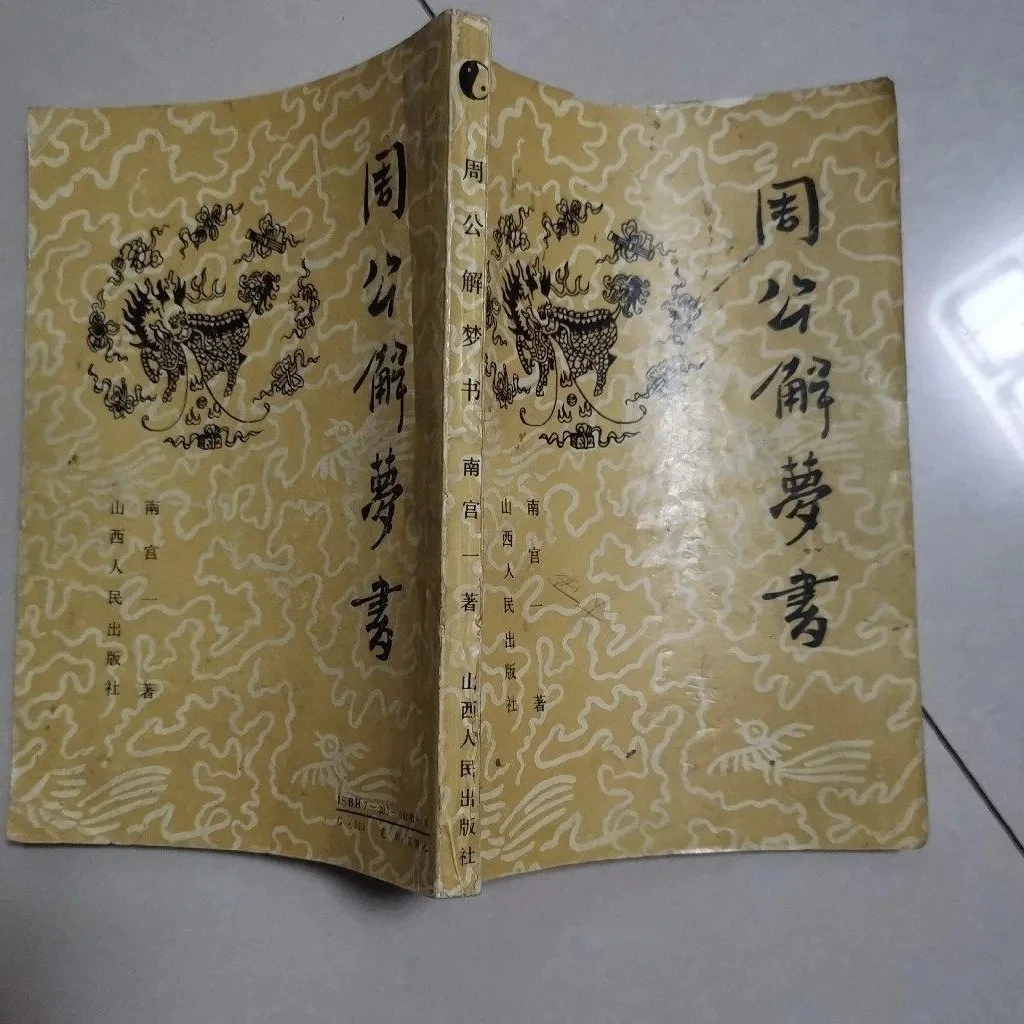 周公解夢書
南宫一 著
山西人民出版社
周公解梦书 南宫一 著 山西人民出版社
周公解夢書
南宫一 著
山西人民出版社